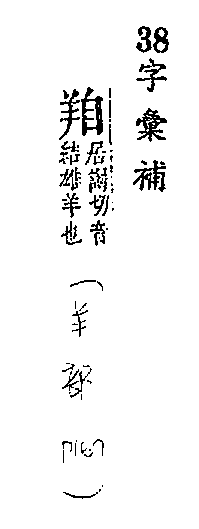 38字彙補
居謁切音
結雄羊也
(羊部 P167)